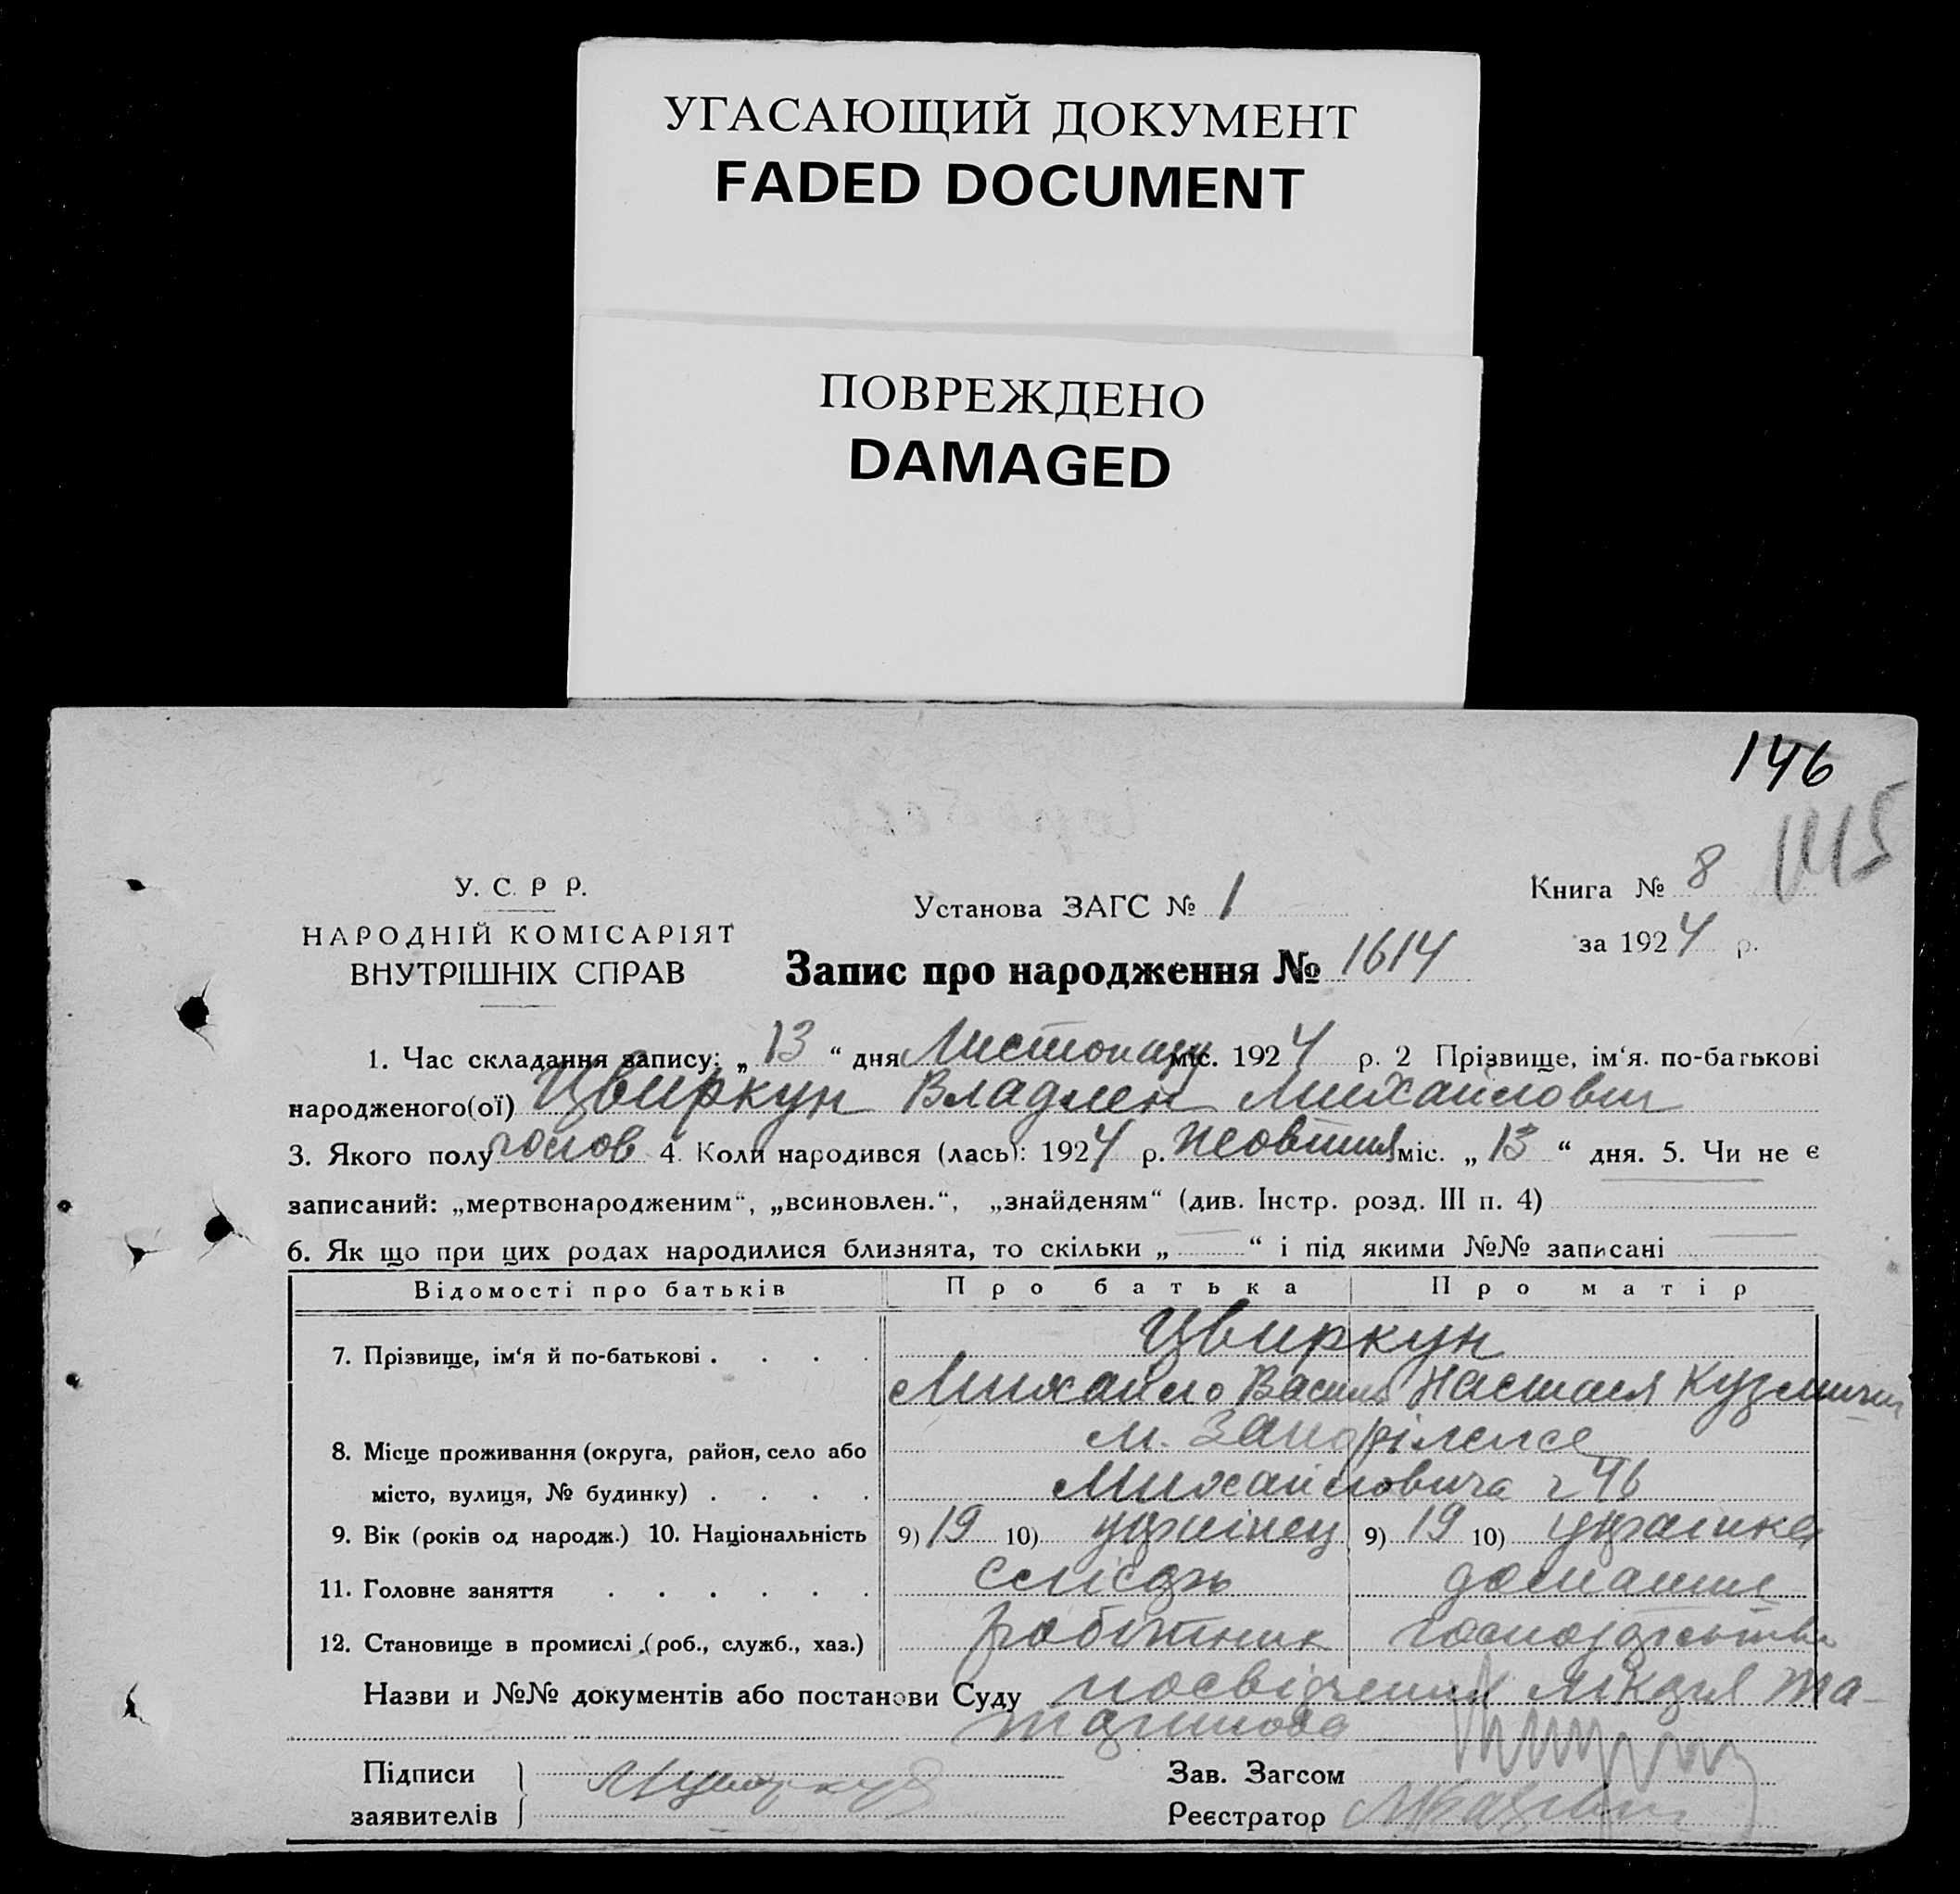 УГАСАЮЩИЙ ДОКУМЕНТ
FADED DOCUMENT
ПОВРЕЖДЕНО
DAMAGED
146
У. С. Р Р.
НАРОДНІЙ КОМІСАРІЯТ
ВНУТРІШНІХ СПРАВ
Установа ЗАГС № 1
Книга № 8
за 1924 р.
Запис про народження № 1614
1. Час складання запису: „ 13 “ дня Листопада міс. 1924 р. 2 Прізвище, ім‘я. по-батькові
народженого(ої) Цвиркун Владлен Михайлович
3. Якого полу чолов 4. Коли народився (лась): 1924 р. Жовтня міс. „ 13 “ дня. 5. Чи не є
записаний: „мертвонародженим“, „всиновлен.“, „знайденям“ (див. Інстр. розд. III п. 4)
6. Як що при цих родах народилися близнята, то скільки „ “ і під якими №№ записані
Відомості про батьків Про батька Про матір
7. Прізвище, ім‘я й по-батькові . . . . Цвиркун
Михайло Васил Настася
8. Місце проживання (округа, район, село або м.
місто, вулиця, № будинку) . . . . Михайловича 46
9. Вік (років од народж.) 10. Національність 9) 19 10) украінец 9) 19 10) украинка
11. Головне заняття . . . . . . слюсарь домашне
12. Становище в промислі (роб., служб., хаз.) робітник господарство
Назви и №№ документів або постанови Суду посвідчення лікаря
Підписи
заявителів
Зав. Загсом
Реєстратор